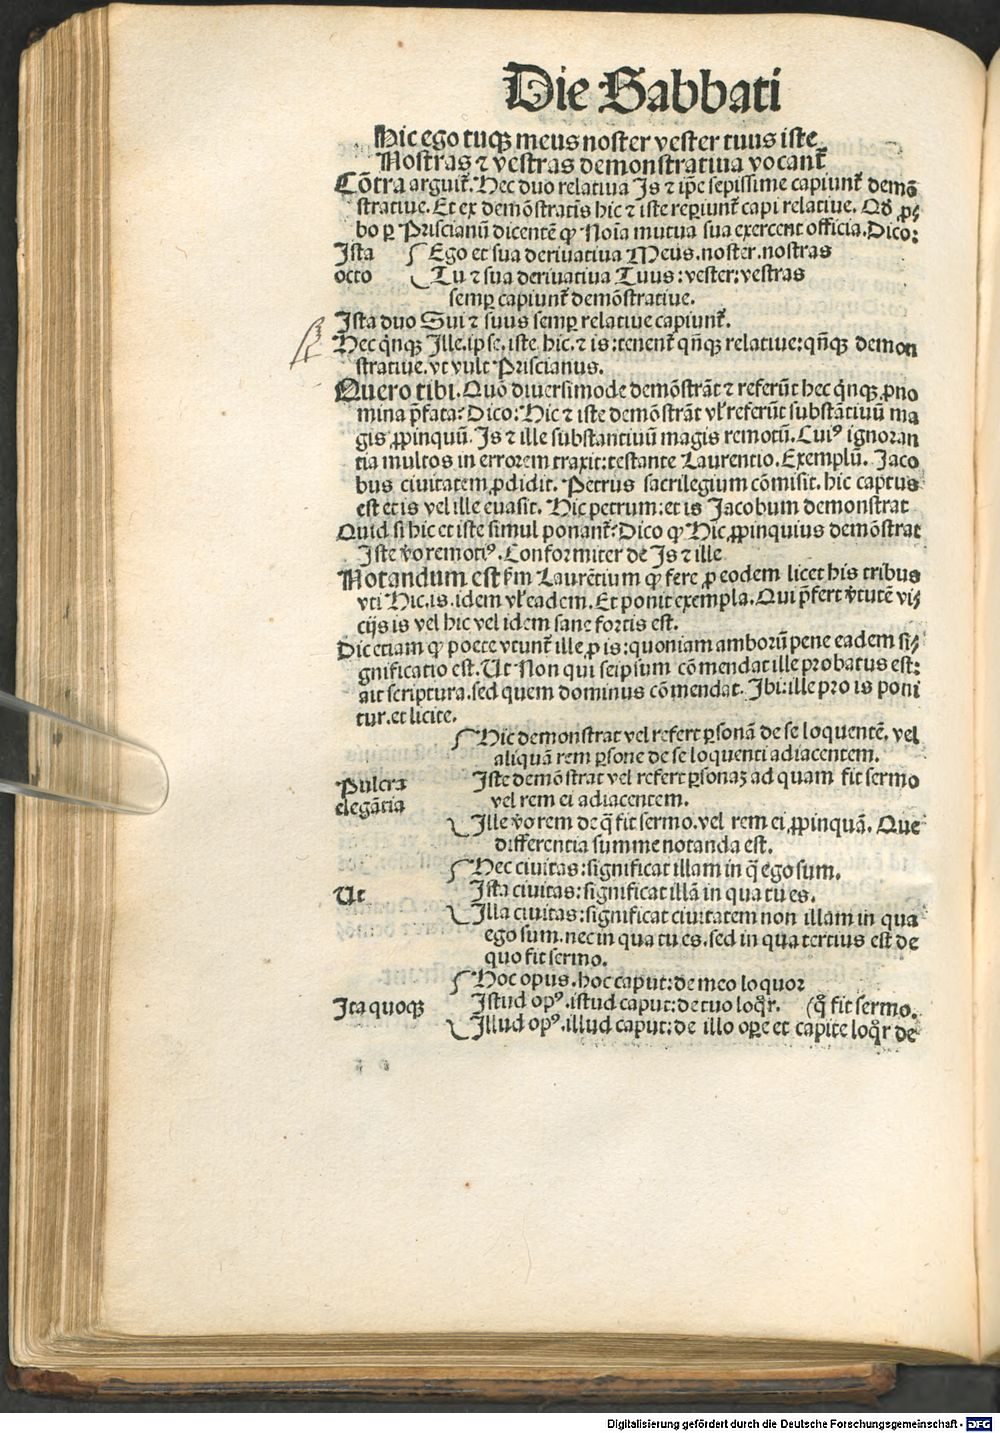 Die Sabbati
Hic ego tuqꝫ meus noster vester tuus iste
Nostras ⁊ vestras demonstratiua vocant᷑
Cõtra arguit᷑. Hec duo relatiua Is ⁊ ip̃e sepissime capiunt᷑ demõ
stratiue. Et ex demõstratis hic ⁊ iste reꝑiunt᷑ capi relatiue. Qđ ꝓ
bo ꝑ Priscianũ dicentẽ ꝙ Noĩa mutua sua exercent officia. Dico:
Ista Ego et sua deriuatiua Meus.noster.nostras
octo Tu ⁊ sua deriuatiua Tuus:vester:vestras
semꝑ capiunt᷑ demõstratiue.
Ista duo Sui ⁊ suus semꝑ relatiue capiunt᷑.
Hec q̃nqꝫ Ille.ipse.iste.hic.⁊ is:tenent᷑ qñqꝫ relatiue:qñqꝫ demon
stratiue.vt vult Priscianus.
Quero tibi. Quõ diuersimode demõstrãt ⁊ referũt hec q̃nqꝫ ꝓno
mina p̃fata? Dico: Hic ⁊ iste demõstrãt vl̕ referũt substãtiuũ ma
gis ꝓpinquũ. Is ⁊ ille substantiuũ magis remotũ. Cuiꝰ ignoran
tia multos in errorem traxit:testante Laurentio. Exemplũ. Jaco
bus ciuitatem ꝓdidit. Petrus sacrilegium cõmisit. hic captus
est et is vel ille euasit. Hic petrum:et is Jacobum demonstrat
Quid si hic et iste simul ponant᷑? Dico ꝙ Hic ꝓpinquius demõstrat
Iste ṽo remotiꝰ. Conformiter de Is ⁊ ille
Notandum est ẜm Laurẽtium ꝙ fere ꝓ eodem licet his tribus
vti Hic.is.idem vl̕ eadem. Et ponit exempla. Qui p̃fert ṽtutẽ vi
cijs is vel hic vel idem sane fortis est.
Dic etiam ꝙ poete vtunt᷑ ille ꝓ is:quoniam amborũ pene eadem si
gnificatio est. Ut Non qui seipsum cõmendat ille probatus est:
ait scriptura.sed quem dominus cõmendat. Ibi:ille pro is poni
tur.et licite.
Hic demonstrat vel refert ꝑsonã de se loquentẽ. vel
aliquã rem ꝑsone de se loquenti adiacentem.
Pulcra Iste demõstrat vel refert ꝑsonaꝫ ad quam fit sermo
elegãtia vel rem ei adiacentem.
Ille ṽo rem de q̃ fit sermo.vel rem ei ꝓpinquã. Que
differentia summe notanda est.
Hec ciuitas:significat illam in q̃ ego sum.
Ut Ista ciuitas:significat illã in qua tu es.
Illa ciuitas:significat ciuitatem non illam in qua
ego sum.nec in qua tu es.sed in qua tertius est de
quo fit sermo.
Hoc opus.hoc caput:de meo loquor
Ita quoqꝫ Istud opꝰ.istud caput:de tuo loq̃r. (q̃ fit sermo.
Illud opꝰ.illud caput:de illo oꝑe et capite loq̃r de
Digitalisierung gefördert durch die Deutsche Forschungsgemeinschaft - DFG